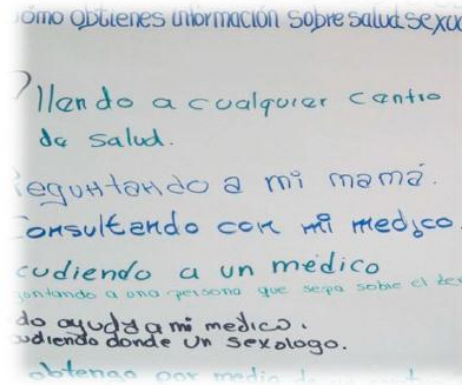 ómo obtienes información sobre salud sexu
llendo a cualquier centro
de salud.
reguntando a mi mamá.
Consultando con mi medico.
cudiendo a un médico
guntando a una persona que sepa sobre el te
do ayuda a mi medico.
udiendo donde un sexologo.
obtengo por medio d